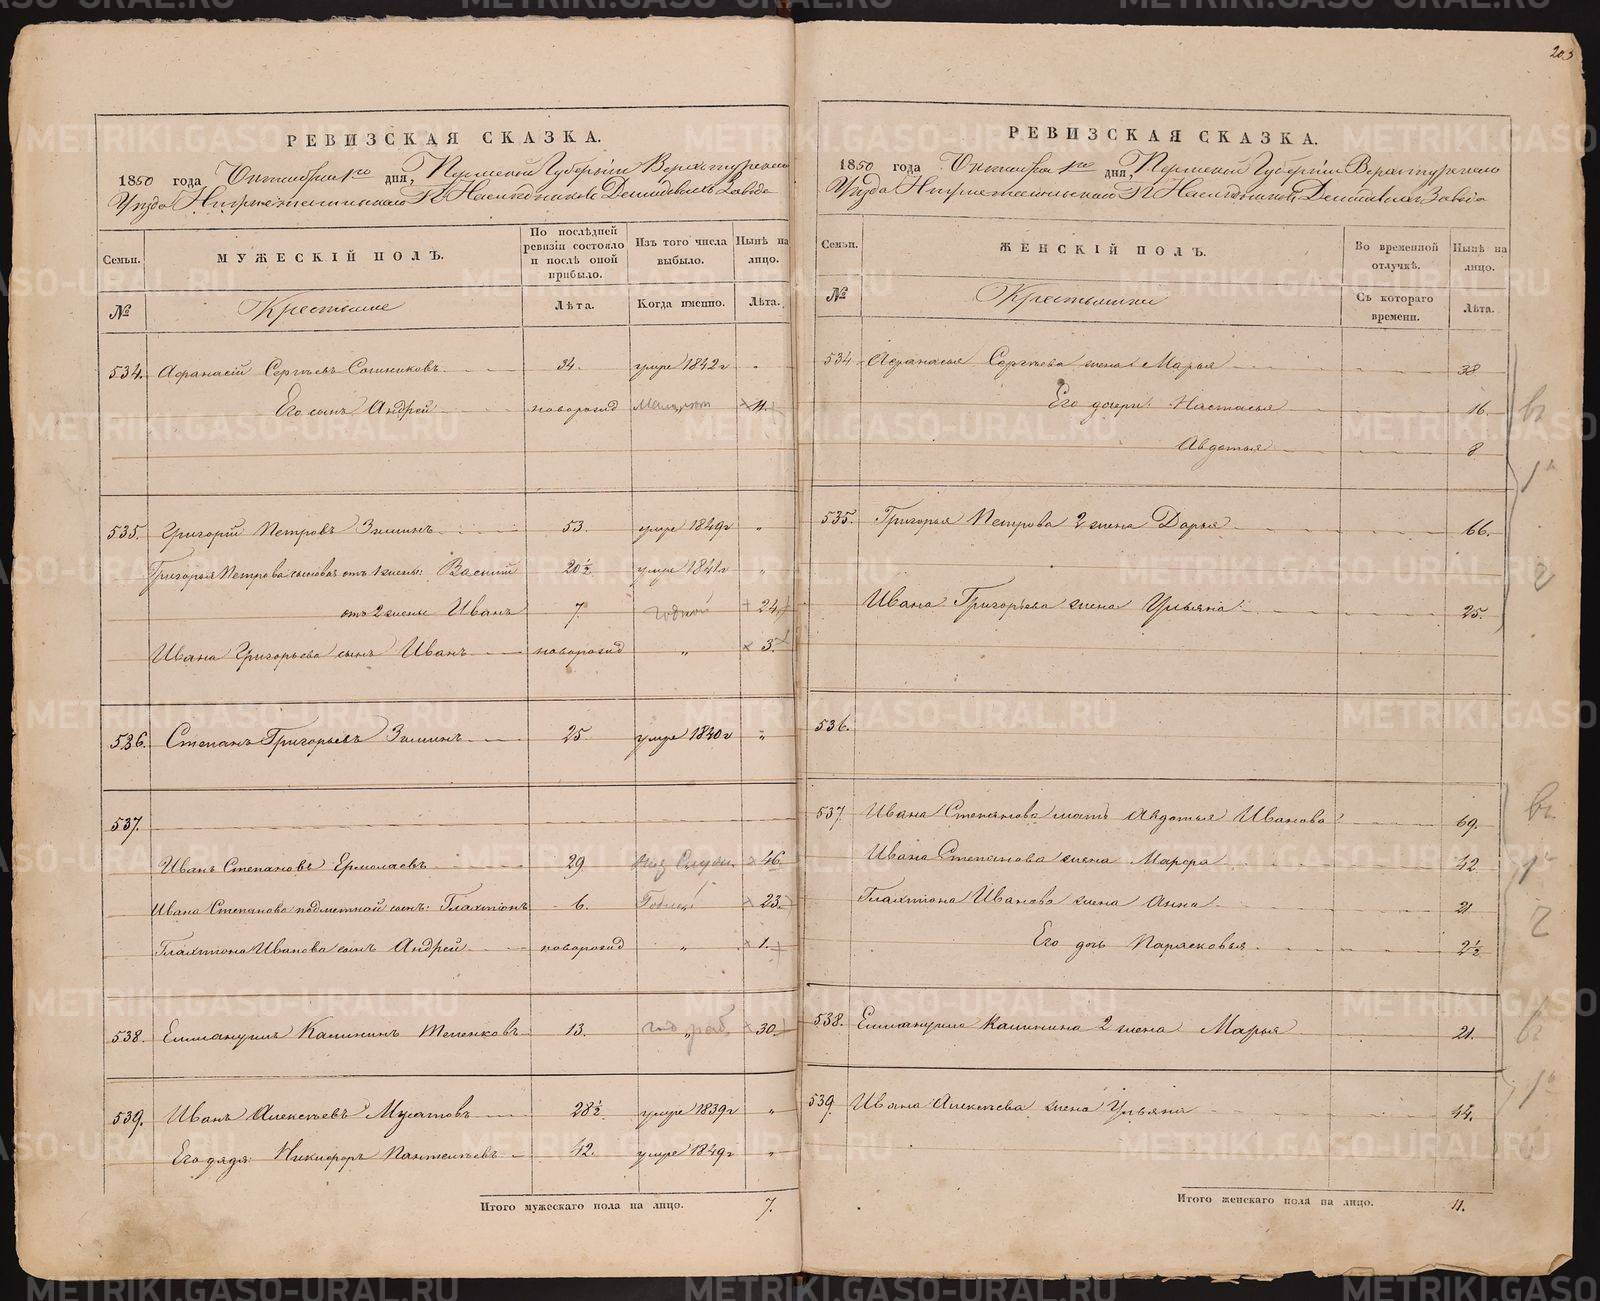 203
РЕВИЗСКАЯ СКАЗКА.
1850 года Октября 1го дня, Пермской Губерніи Верхотурскаго
Уѣзда Нижнетагильскаго Г.г. Наслѣдниковъ Демидовыхъ Завода
Семьи.
МУЖЕСКІЙ ПОЛЪ.
По послѣдней ревизіи состояло и послѣ оной прибыло.
Изъ того числа выбыло.
Нынѣ на лицо.
№
Крестьяне
Лѣта.
Когда именно.
Лѣта.
534. Афанасій Сергѣевъ Сошниковъ 34. умре 1842г „
Его сынъ Андрей новорожд 11.
535. Григорій Петровъ Зиминъ 53. умре 1849г „
Григорья Петрова сыновья отъ 1 жены: Василій 20½ умре 1841г „
отъ 2 жены Иванъ 7. годной 24.
Ивана Григорьева сынъ Иванъ новорожд „ 3.
536. Степанъ Григорьевъ Зиминъ 25 умре 1840г „
537.
Иванъ Степановъ Ермолаевъ 29 46
Ивана Степанова подметной сынъ: Галахтіонъ 6. Годной 23.
Галахтіона Иванова сынъ Андрей новорожд „ 1.
538. Еммануилъ Калининъ Теленковъ 13. „ 30
539. Иванъ Алексѣевъ Мусатовъ 28½ умре 1839г „
Его дядя: Никифоръ Пантелѣевъ 42. умре 1849г „
Итого мужескаго пола на лицо. 7.
РЕВИЗСКАЯ СКАЗКА.
1850 года Октября 1го дня, Пермской Губерніи Верхотурскаго
Уѣзда Нижнетагильскаго Г.г. Наслѣдниковъ Демидовыхъ Завода
Семьи.
ЖЕНСКІЙ ПОЛЪ.
Во временной отлучкѣ.
Нынѣ на лицо.
№
Крестьянки
Съ котораго времени.
Лѣта.
534 Афанасья Сергѣева жена Марья 38
Его дочери: Настасья 16.
Авдотья 8
535. Григорья Петрова 2 жена Дарья 66.
Ивана Григорьева жена Ульяна 25.
536.
537 Ивана Степанова мать Авдотья Иванова 69.
Ивана Степанова жена Марфа 42
Галахтіона Иванова жена Анна 21
Его дочь Парасковья 2½
538. Еммануила Калинина 2 жена Марья 21.
539. Ивана Алексѣева жена Ульяна 44.
Итого женскаго пола на лицо. 11.
METRIKI.GASO-URAL.RU